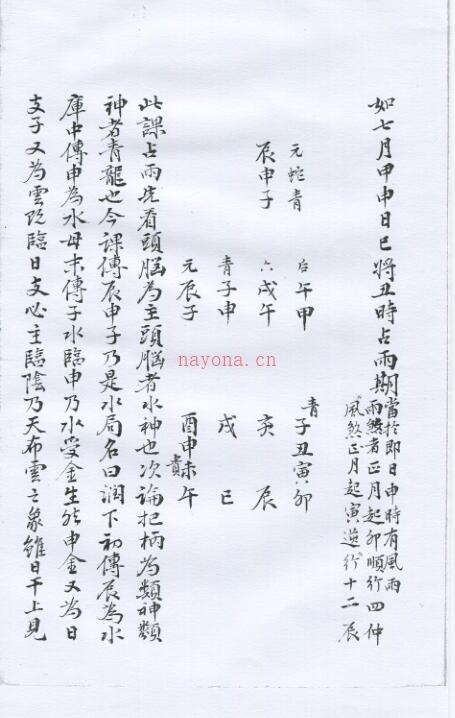 如七月甲申日巳將丑時占雨期當於即日申時有風雨
雨煞者正月起卯順行四仲
風煞正月起寅逆行十二辰
元蛇青
辰申子
后午甲
六戌午
青子申
元辰子
青子丑寅卯
亥辰
戌巳
酉申未午
貴
此課占雨先看頭腦為主頭腦者水神也次論把柄為類神類
神者青龍也今課傳辰申子乃是水局名曰潤下初傳辰為水
庫中傳申為水母末傳子水臨申乃水受金生然申金又為日
支子又為雲既臨日支必主臨陰乃天布雲之象雖日干上見
nayona.cn